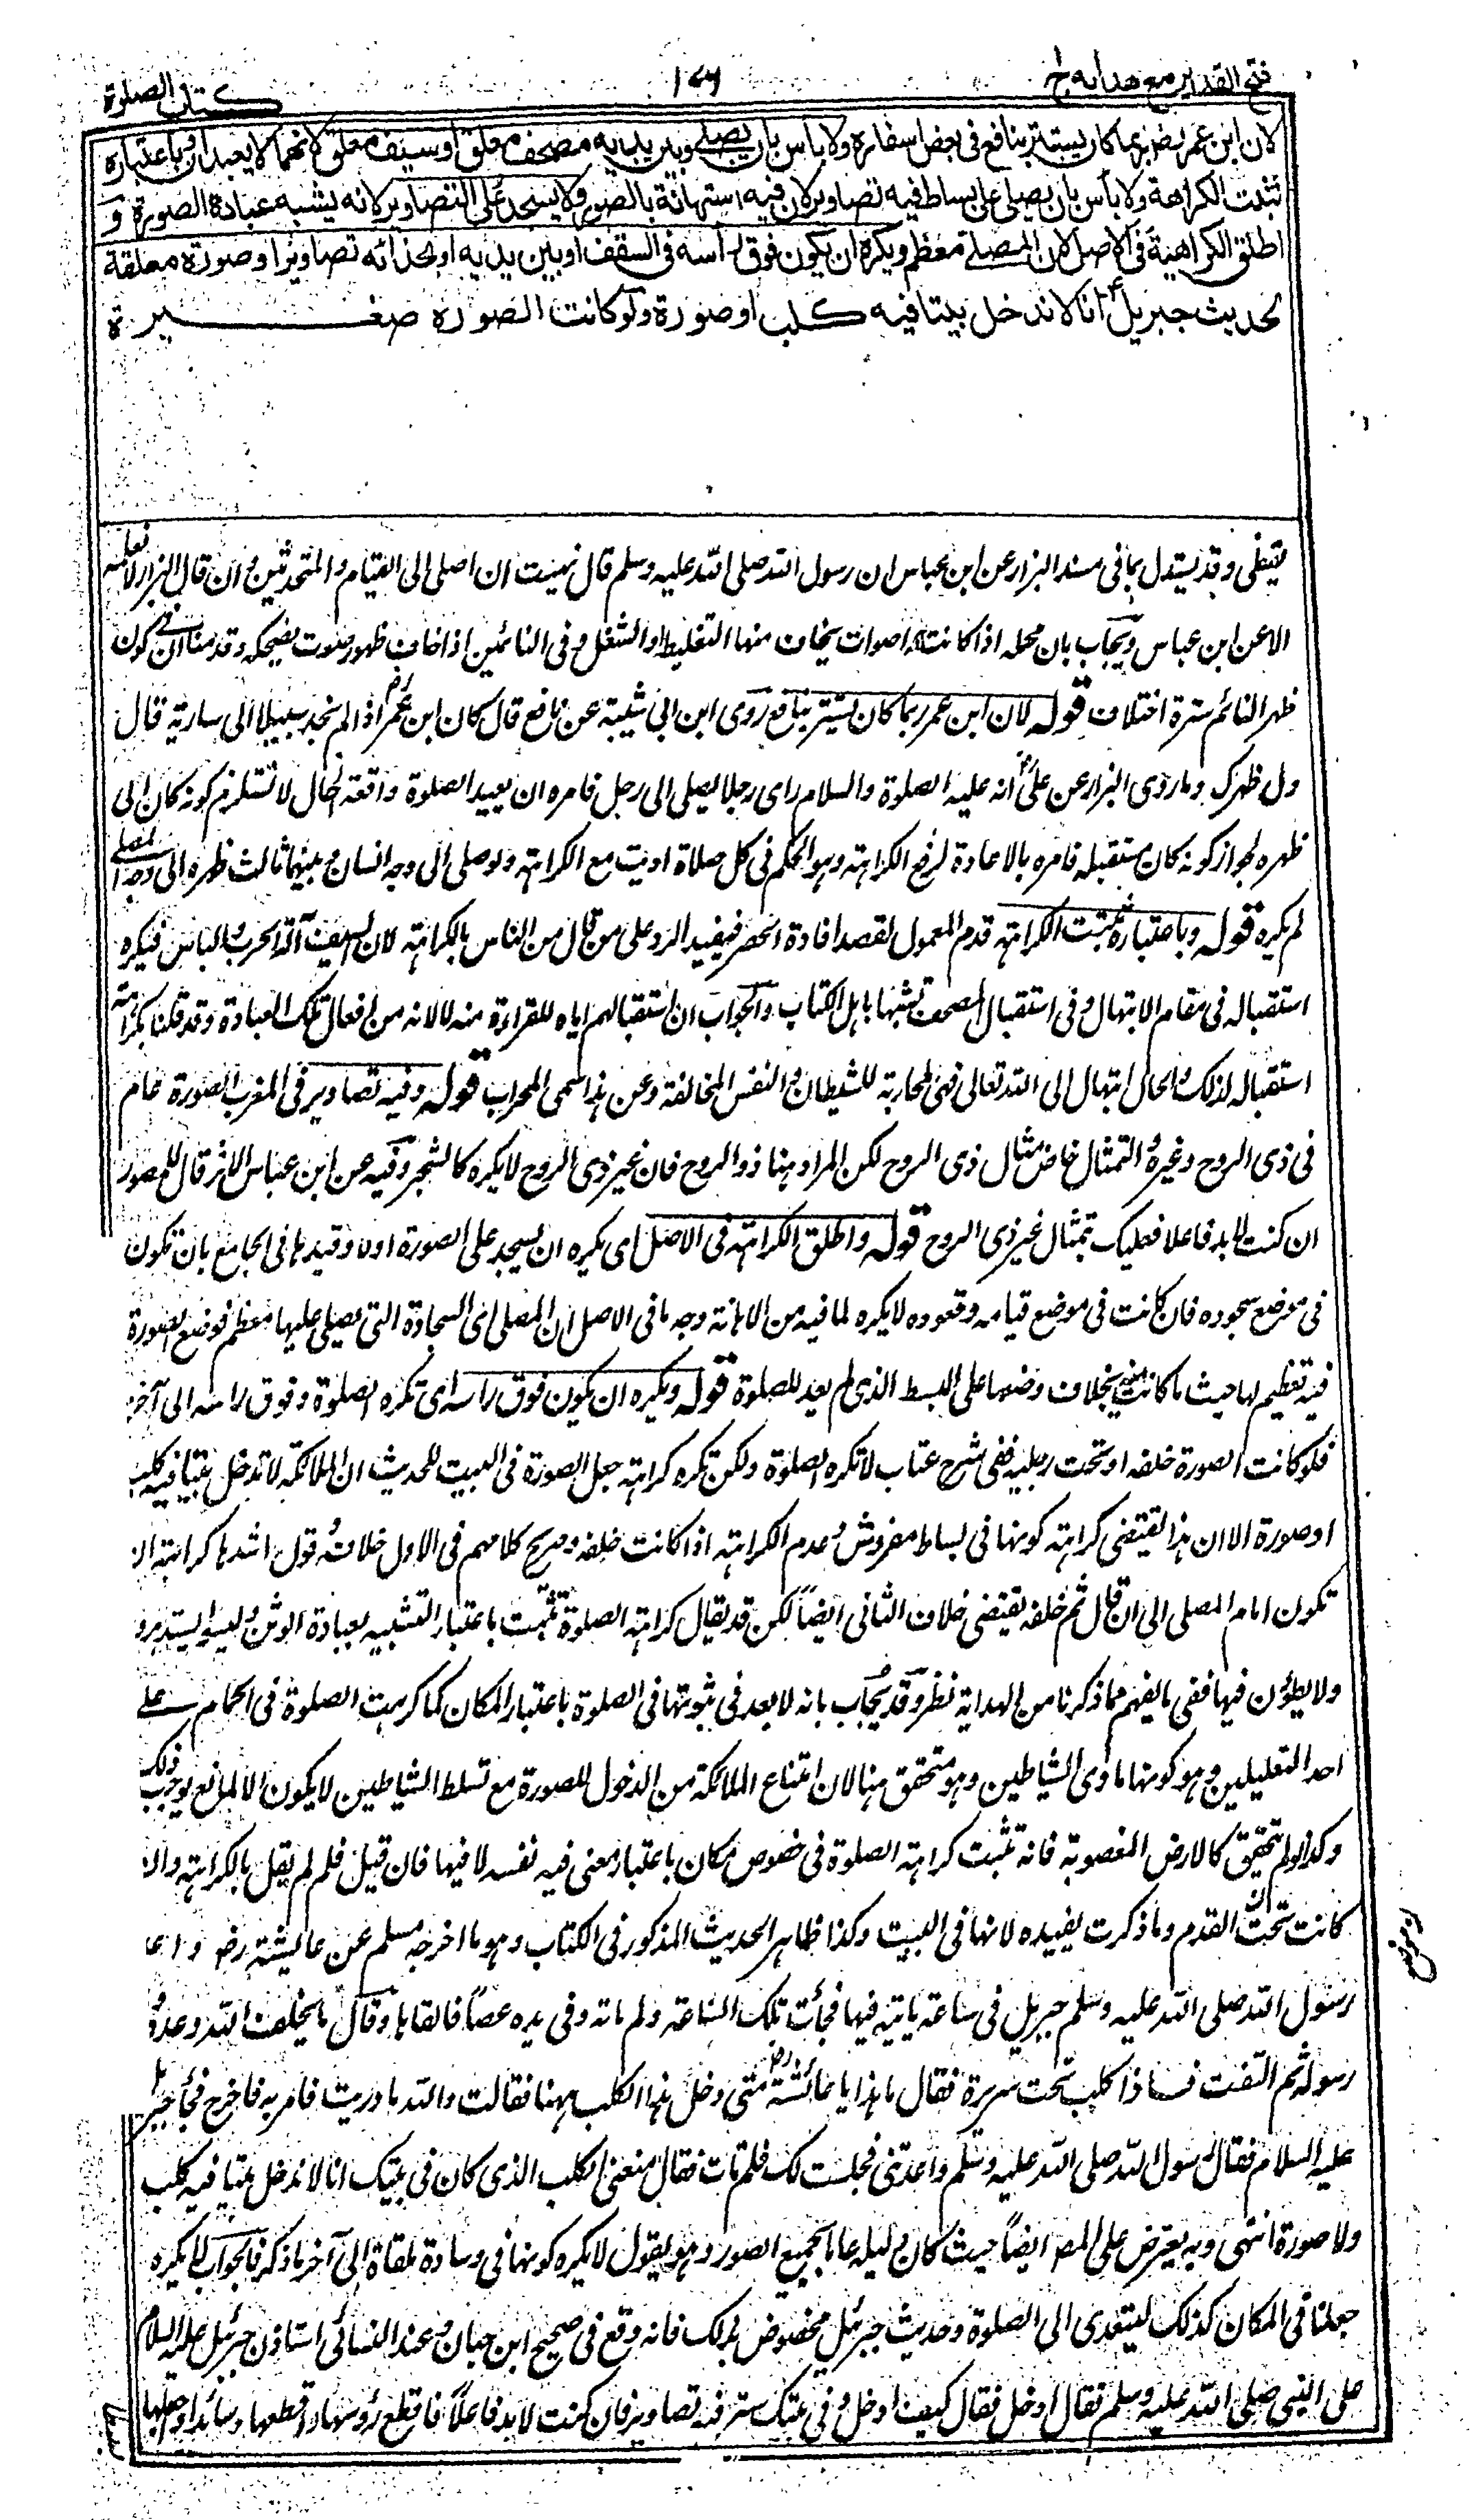 فتح القدير مع هدايه ج
۱۷۶
كتاب الصلوة
لان ابن عمر رض ربما كان يستتر بنافع في بعض اسفاره ولا بأس بان يصلي وبين يديه مصحف معلق او سيف معلق لانهما لا يعبدان وباعتباره
تثبت الكراهة ولا بأس بان يصلي على بساط فيه تصاوير لان فيه استهانة بالصور ولا يسجد على التصاوير لانه يشبه عبادة الصورة و
اطلق الكراهية في الاصل لان المصلى معظم ويكره ان يكون فوق رأسه في السقف او بين يديه او بحذائه تصاوير او صورة معلقة
لحديث جبريل انا لا ندخل بيتا فيه كلب او صورة ولو كانت الصورة صغيرة
يقتضى وقد يستدل بما فى مسند البزار عن ابن عباس ان رسول الله صلى الله عليه وسلم قال نهيت ان اصلى الى النيام والمتحدثين وان قال البزار لا نعلمه
الا عن ابن عباس ويجاب بان محله اذا كانت لهم اصوات يخاف منها التغليط او الشغل وفى النائمين اذا خاف ظهور صوت يضحكه وقد منا ان فى كون
ظهر النائم سترة اختلاف قوله لان ابن عمر ربما كان يستتر بنافع روى ابن ابى شيبة عن نافع قال كان ابن عمر رض اذا لم يجد سبيلا الى سارية قال
ول ظهرك وما روى البزار عن على انه عليه الصلوة والسلام راى رجلا يصلى الى رجل فامره ان يعيد الصلوة واقعة حال لا تستلزم كونه كان الى
ظهره لجواز كونه كان مستقبله فامره بالاعادة لرفع الكراهة وهو الحكم فى كل صلاة اديت مع الكراهة ولو صلى الى وجه انسان وبينهما ثالث ظهره الى وجه المصلى
لم يكره قوله وباعتباره تثبت الكراهة قدم المعمول لقصد افادة الحصر فيفيد الرد على من قال من الناس بالكراهة لان السيف آلة الحرب والباس فيكره
استقباله فى مقام الابتهال وفى استقبال المصحف تشبها باهل الكتاب والجواب ان استقبالهم اياه للقراءة منه لا لانه من افعال تلك العبادة وقد قلنا بكراهة
استقباله لذلك والحال ابتهال الى الله تعالى فهى محاربة للشيطان والنفس المخالفة وعن هذا سمى المحراب قوله وفيه تصاوير فى المغرب الصورة عام
فى ذى الروح وغيره والتمثال خاص مثال ذى الروح لكن المراد هنا ذو الروح فان غير ذى الروح لا يكره كالشجر وفيه عن ابن عباس الاثر قال للمصور
ان كنت لا بد فاعلا فعليك بتمثال غير ذى الروح قوله واطلق الكراهة فى الاصل اى يكره ان يسجد على الصورة اولا وقيدها فى الجامع بان تكون
فى موضع سجوده فان كانت فى موضع قيامه وقعوده لا يكره لما فيه من الاهانة وجه ما فى الاصل ان المصلى اى السجادة التى يصلى عليها معظم فوضع الصورة
فيه تعظيم لها حيث ما كانت منه بخلاف وضعها على البسط الذى لم يعد للصلوة قوله ويكره ان يكون فوق راسه اى تكره الصلوة وفوق راسه الى آخره
فلو كانت الصورة خلفه او تحت رجليه ففى شرح عتاب لا تكره الصلوة ولكن تكره كراهة جعل الصورة فى البيت للحديث ان الملائكة لا تدخل بيتا فيه كلب
او صورة الا ان هذا يقتضى كراهة كونها فى بساط مفروش وعدم الكراهة اذا كانت خلفه وصريح كلامهم فى الاول خلافه وقول اشدها كراهة ان
تكون امام المصلى الى ان قال ثم خلفه يقتضى خلاف الثانى ايضا لكن قد يقال كراهة الصلوة تثبت باعتبار التشبيه بعبادة الوثن وليسوا يستدبرو
ولا يطؤن فيها ففى ما يفهم مما ذكرنا من الهداية نظر وقد يجاب بانه لا بعد فى ثبوتها فى الصلوة باعتبار المكان كما كرهت الصلوة فى الحمام على
احد التعليلين وهو كونها ماوى الشياطين وهو متحقق هنا لان امتناع الملائكة من الدخول للصورة مع تسلط الشياطين لا يكون الا لمانع يوجب ذلك
وكذا ان لم يتحقق كالارض المغصوبة فانه تثبت كراهة الصلوة فى خصوص مكان باعتبار معنى فيه نفسه لا فيها فان قيل فلم لم يقل بالكراهة وان
كانت تحت القدم وما ذكرت يفيده لانها فى البيت وكذا ظاهر الحديث المذكور فى الكتاب وهو ما اخرجه مسلم عن عائشة رض واعد
رسول الله صلى الله عليه وسلم جبريل فى ساعة ياتيه فيها فجاءت تلك الساعة ولم ياته وفى يده عصا فالقاها وقال ما يخلف الله وعده و
رسوله ثم التفت فاذا كلب تحت سريره فقال ما هذا يا عائشة رض متى دخل هذا الكلب ههنا فقالت والله ما دريت فامر به فاخرج فجاء جبريل
عليه السلام فقال رسول الله صلى الله عليه وسلم واعدتنى فجلست لك فلم تات فقال منعنى الكلب الذى كان فى بيتك انا لا ندخل بيتا فيه كلب
ولا صورة انتهى وبه يعترض على المص ايضا حيث كان دليله عاما لجميع الصور وهو يقول لا يكره كونها فى وسادة ملقاة الى آخر ما ذكر فالجواب لا يكره
جعلنا فى المكان كذلك ليتعدى الى الصلوة وحديث جبرئيل مخصوص بذلك فانه وقع فى صحيح ابن حبان وعند النسائى استاذن جبرئيل عليه السلام
على النبى صلى الله عليه وسلم فقال ادخل فقال كيف ادخل وفى بيتك ستر فيه تصاوير فان كنت لا بد فاعلا فاقطع رؤسها او اقطعها وسائد او اجعلها